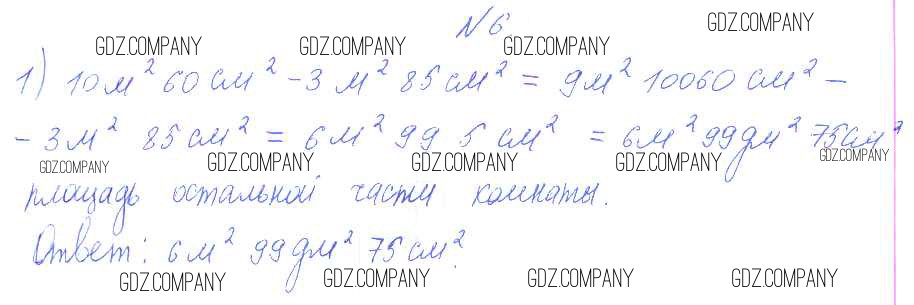 №6.
GDZ.COMPANY
GDZ.COMPANY GDZ.COMPANY GDZ.COMPANY
1) 10 м² 60 см² - 3 м² 85 см² = 9 м² 10060 см² -
- 3 м² 85 см² = 6 м² 99 5 см² = 6 м² 99 дм² 75 см²
GDZ.COMPANY GDZ.COMPANY GDZ.COMPANY GDZ.COMPANY GDZ.COMPANY
площадь остальной части комнаты.
Ответ: 6 м² 99 дм² 75 см².
GDZ.COMPANY GDZ.COMPANY GDZ.COMPANY GDZ.COMPANY